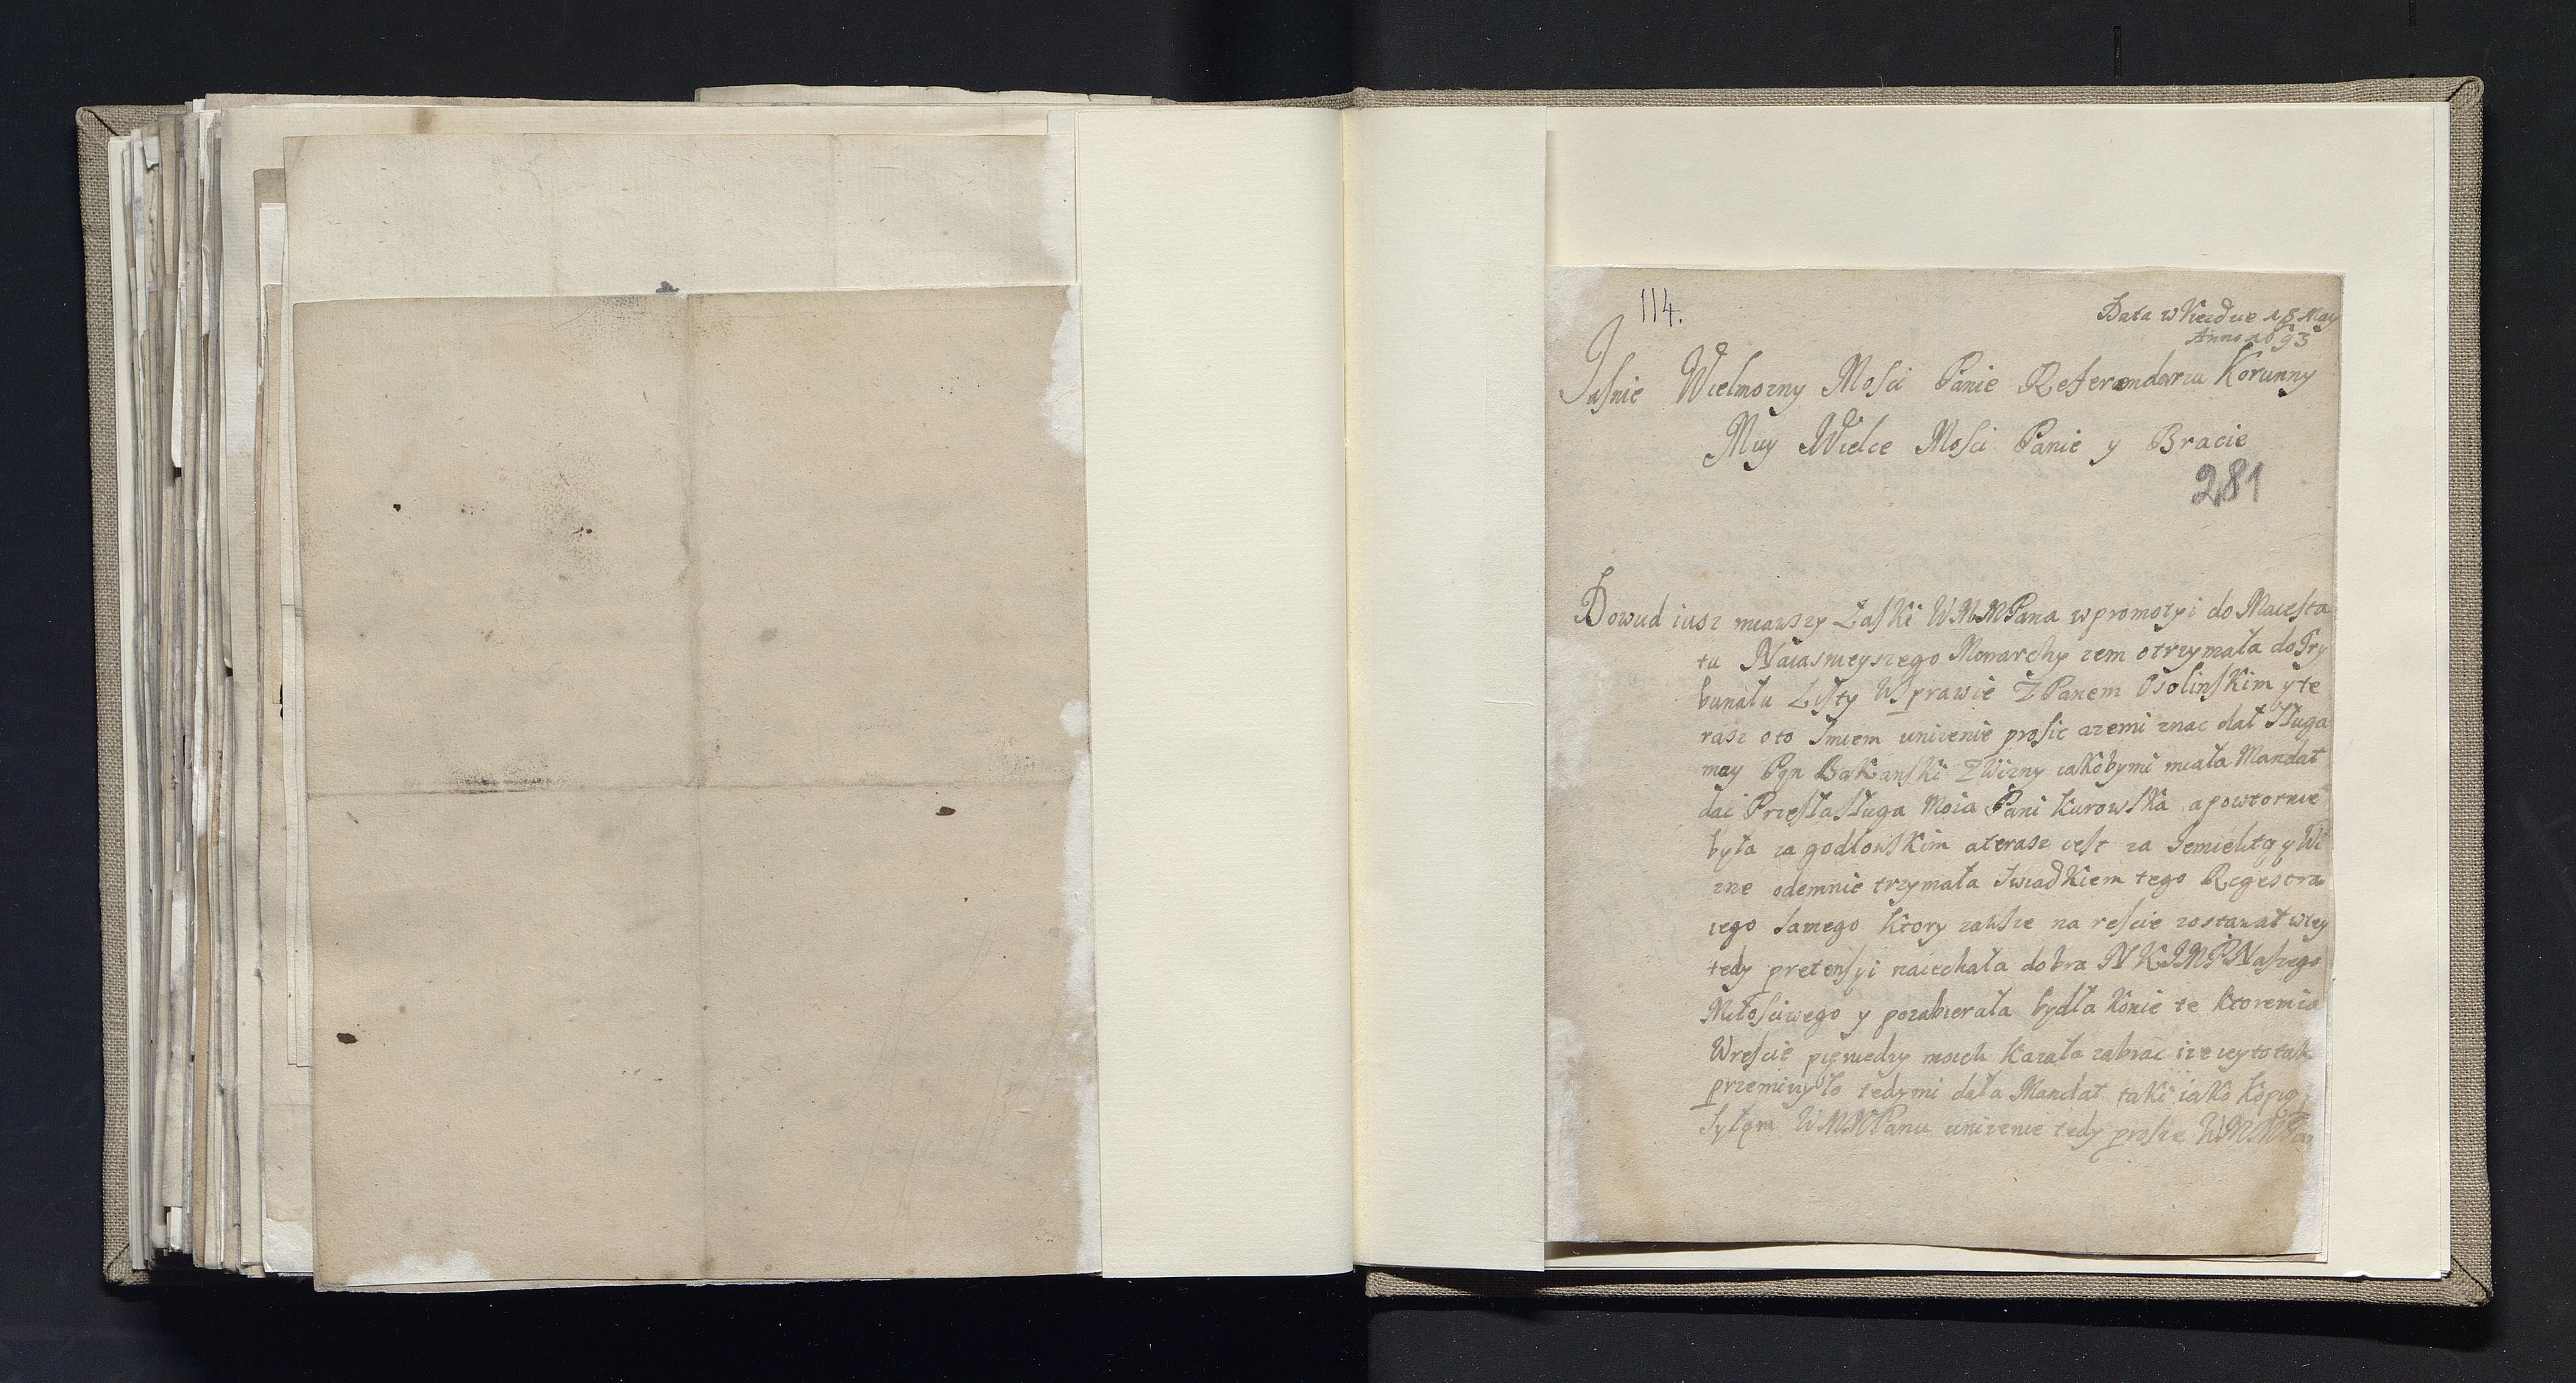 114.
Data w 18 May
Anno 1695
Jaśnie Wielmozny Mosci Panie Referendarzu Korunny
Muy Wielce Mosci Panie y Bracie
281
Dowud iusz miawszy Łaski WMMPana w promocyi do Maiesta
tu Naiasnieyszego Monarchy zem otrzymała do Try
bunału Listy W sprawie Z Panem Osolinskim y te
rasz oto smiem unizenie prosic azemi znac dał sługa
muy Pan Bakanski Z Wizny iakobymi miała Mandat
dac Przesła sługa Moia Pani Kurowska a powtornie
była za godlowskim a terasz iest za y Wi
zne odemnie trzymała swiadkiem tego Regestra
iego samego Ktory zawsze na rescie zostawał w iey
tedy pretensyi naiechała dobra NKIMPNaszego
Miłosciwego y pozabierała bydła Konie te Ktoremia
Wrescie pięniedzy moich Kazała zabrac ize iey to tak
przemineło tedymi dała Mandat taki iako Kopię
syłąm WMMPanu unizenie tedy prosze WMMPan